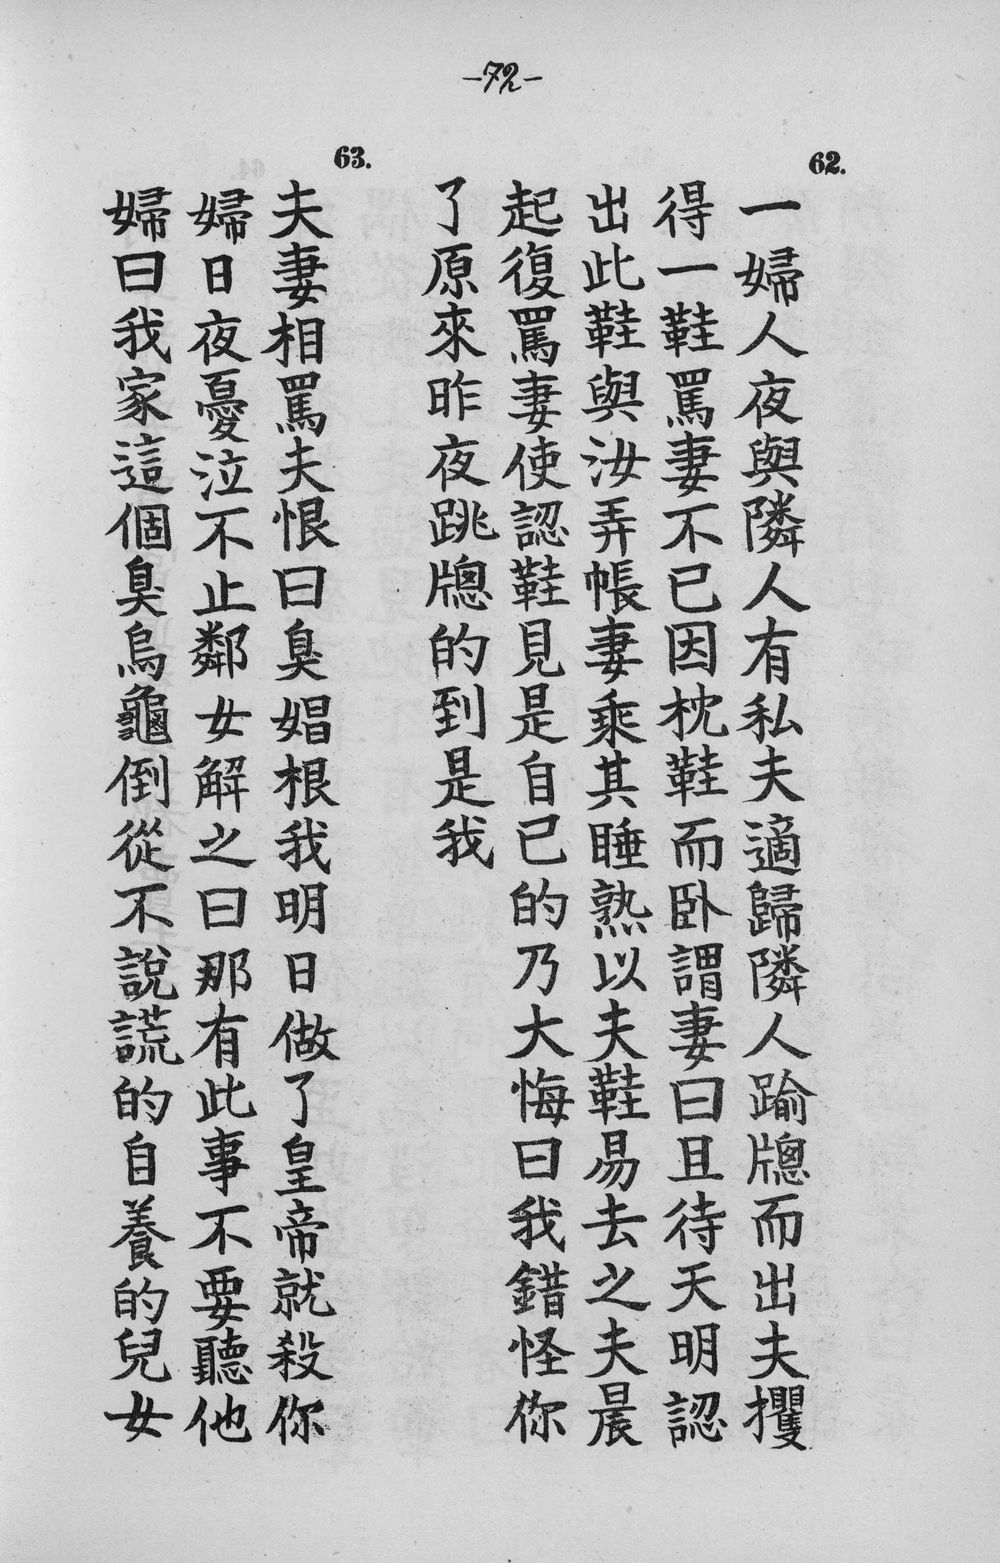 -72-
62.
一婦人夜與隣人有私夫適歸隣人踰牕而出夫攫
得一鞋罵妻不已因枕鞋而卧謂妻曰且待天明認
出此鞋與汝弄帳妻乘其睡熟以夫鞋易去之夫晨
起復罵妻使認鞋見是自已的乃大悔曰我錯怪你
了原來昨夜跳牕的到是我
63.
夫妻相罵夫恨曰臭娼根我明日做了皇帝就殺你
婦日夜憂泣不止鄰女解之曰那有此事不要聽他
婦曰我家這個臭烏龜倒從不說謊的自養的兒女